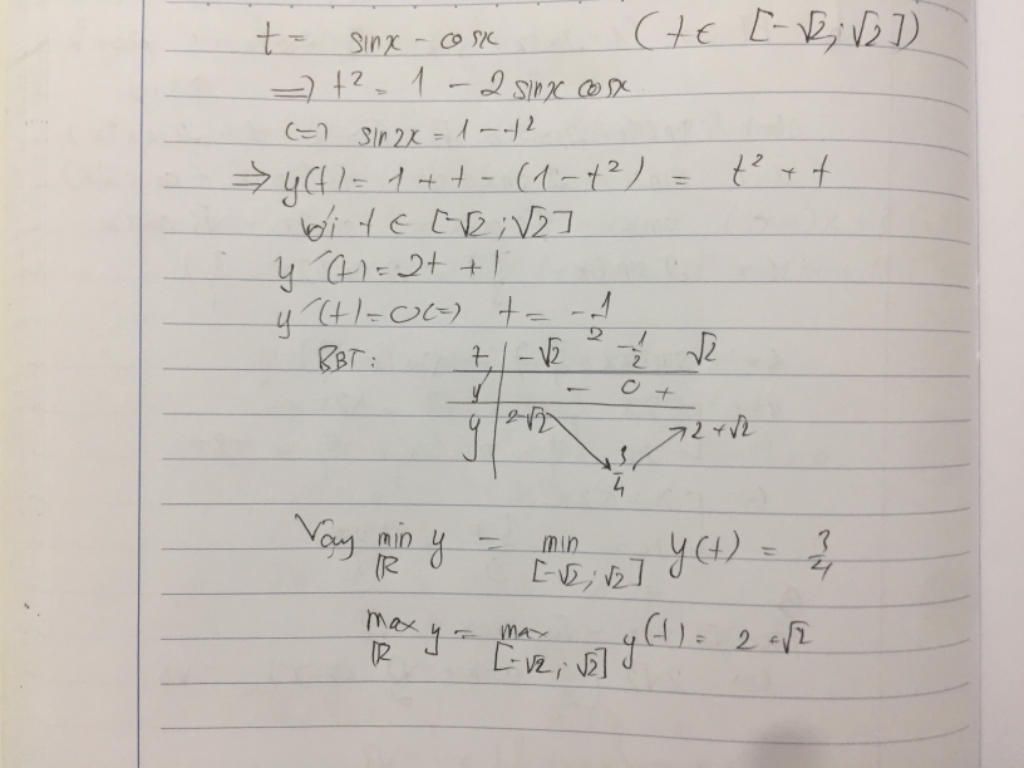 t = sinx - cosx (t ∈ [-√2; √2])
=> t² = 1 - 2 sinx cosx
<=> sin2x = 1 - t²
=> y(t) = 1 + t - (1 - t²) = t² + t
với t ∈ [-√2; √2]
y'(t) = 2t + 1
y'(t) = 0 <=> t = -1/2
BBT: t | -√2 -1/2 √2
y' | - 0 +
y | 2-√2 3/4 2+√2
Vậy min y = min y(t) = 3/4
ℝ [-√2; √2]
max y = max y(t) = 2+√2
ℝ [-√2; √2]